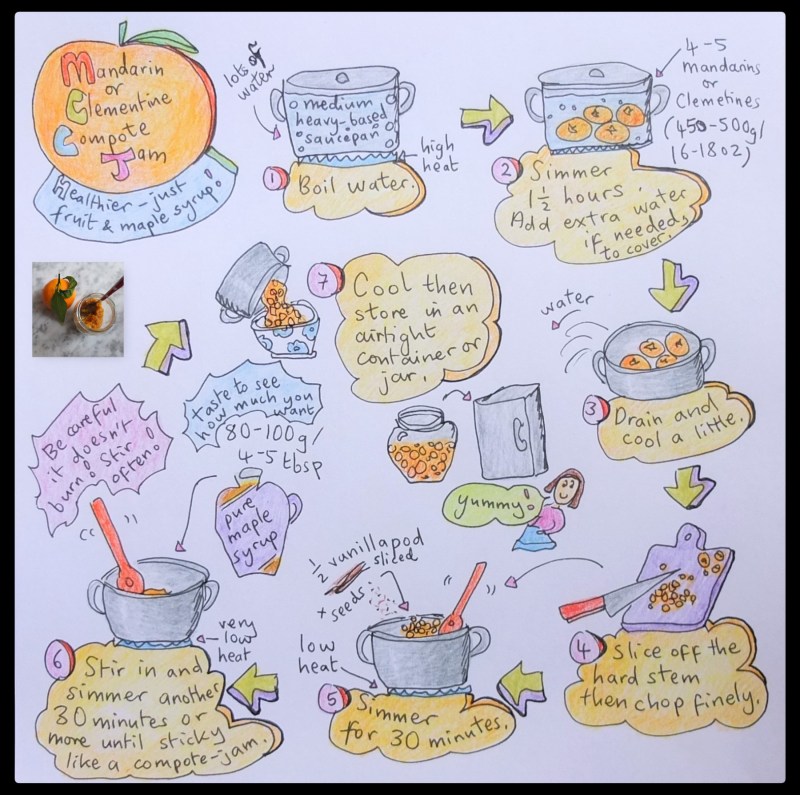 Mandarin
or
Clementine
Compote
Jam
Healthier - just
fruit & maple syrup!
lots of
water
medium
heavy-based
saucepan
high
heat
1 Boil water.
4-5
Mandarins
or
Clemetines
(450-500g/
16-18oz)
2 Simmer
1½ hours.
Add extra water
if needed,
to cover.
water
3 Drain and
cool a little.
4 Slice off the
hard stem
then chop finely.
½ vanilla pod
sliced
+ seeds
low
heat
5 Simmer
for 30 minutes.
Be careful
it doesn't
burn! Stir
often!
taste to see
how much you
want
80-100g/
4-5 tbsp
pure
maple
syrup
very
low
heat
6 Stir in and
simmer another
30 minutes or
more until sticky
like a compote-jam.
7 Cool then
store in an
airtight
container or
jar.
yummy!